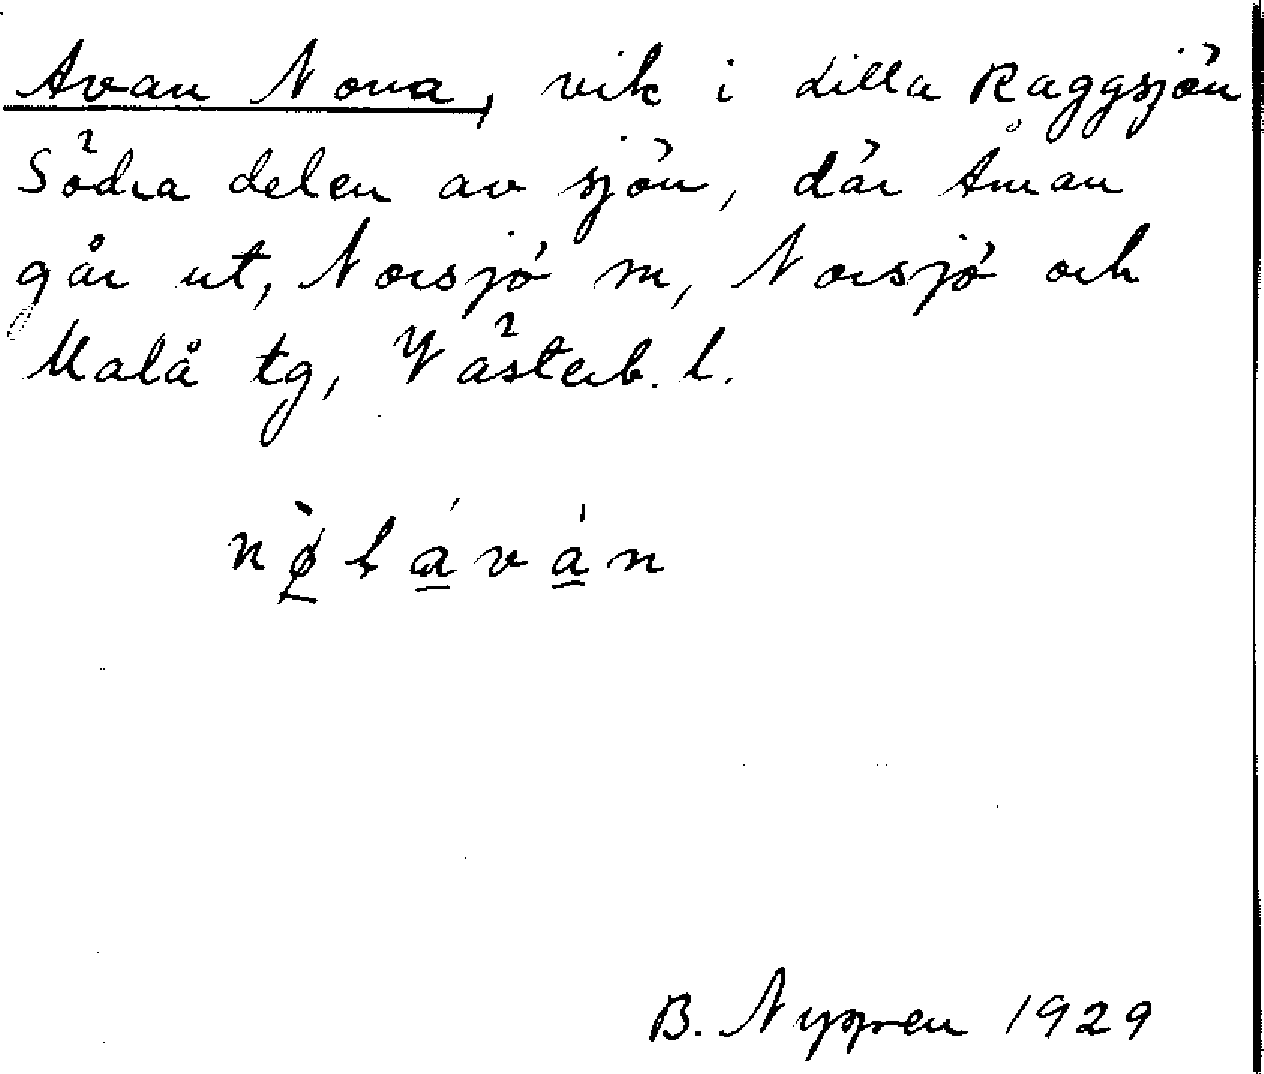 Avan Norra, vik i Lilla Raggsjön
Södra delen av sjön, där Åman
går ut, Norsjö sn, Norsjö och
Malå tg, Västerb. l.
B. Nygren 1929